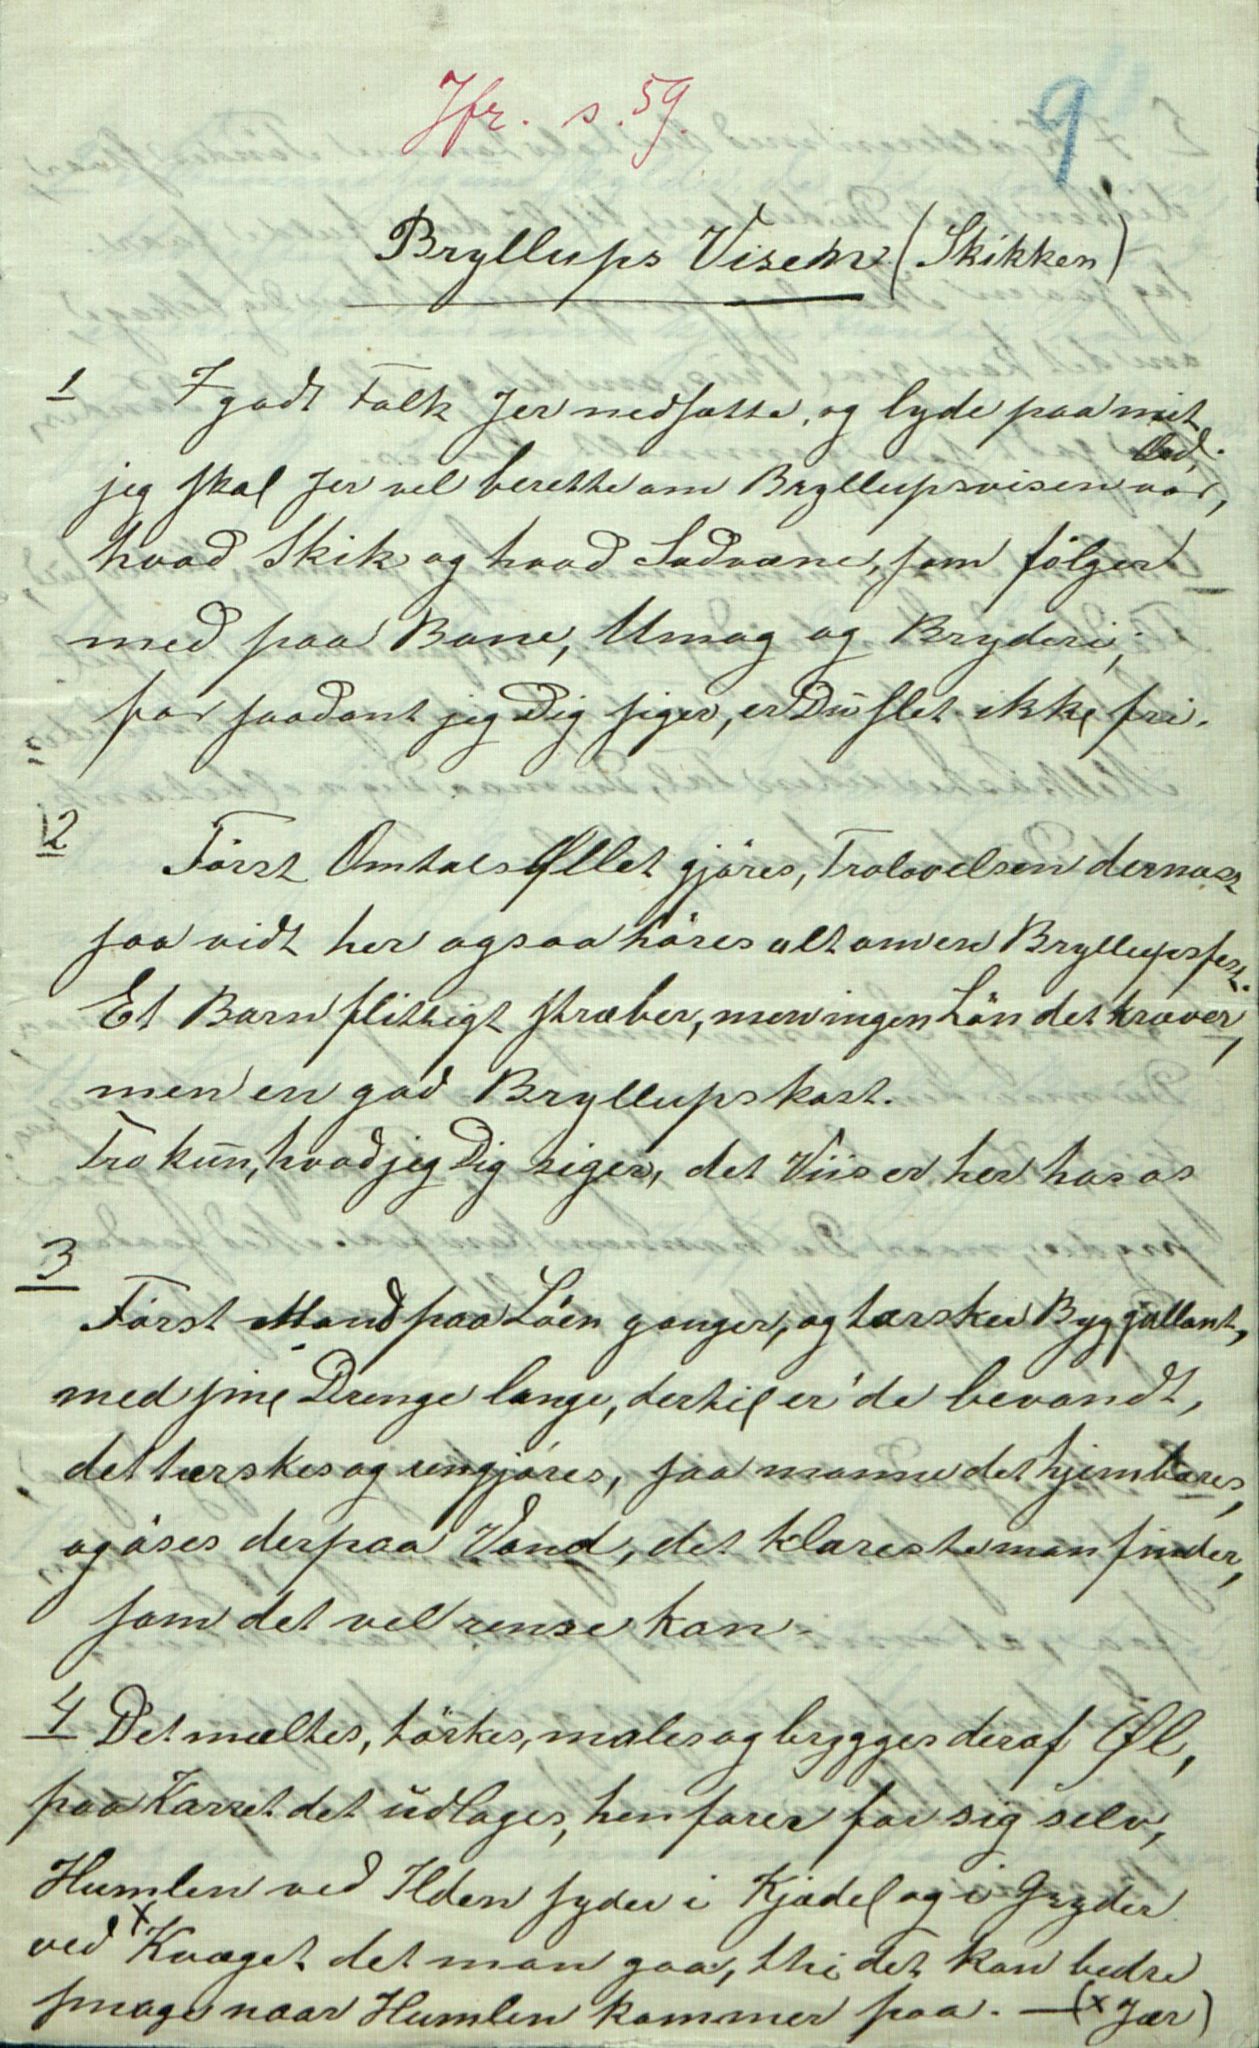 Jfr. s. 59.
9
Bryllups Visen (Skikken)
1 I godt Folk Jer nedsætte, og lyde paa mit
Ord,
jeg skal Jer vel berette om Bryllupsvisen vor,
hvad Skik og hvad Sædvane, som följer
med paa Bane, Umag og Bryderi;
for saadant jeg Dig siger, er Du slet ikke fri.
2 Först Omtals Øllet gjöres, Trolovelsen dernæst
saa vidt her ogsaa höres alt om en Bryllupsfest.
Et Barn flittigt stræber, men ingen Lön det kræver,
men en god Bryllupskost.
Tro kun, hvad jeg Dig siger, det Viis er her hos os
3
Först Mand paa Löen ganger, og tærsker Byg gallant,
med sine Drenge lange, dertil er de bevandt,
det tærskes og rengjöres, saa monne det hjembæres,
og öses derpaa Vand, det klareste man finder,
som det vel rense kan.
4 Det mæltes, törkes, males og brygges deraf Øl,
paa Karret det udlages, henfarer for sig selv,
Humlen ved Ilden syder i Kjædel og i Gryder
ved x Kvæget det mon gaa, thi det kan bedre
smage naar Humlen kommer paa. — (x Jær)